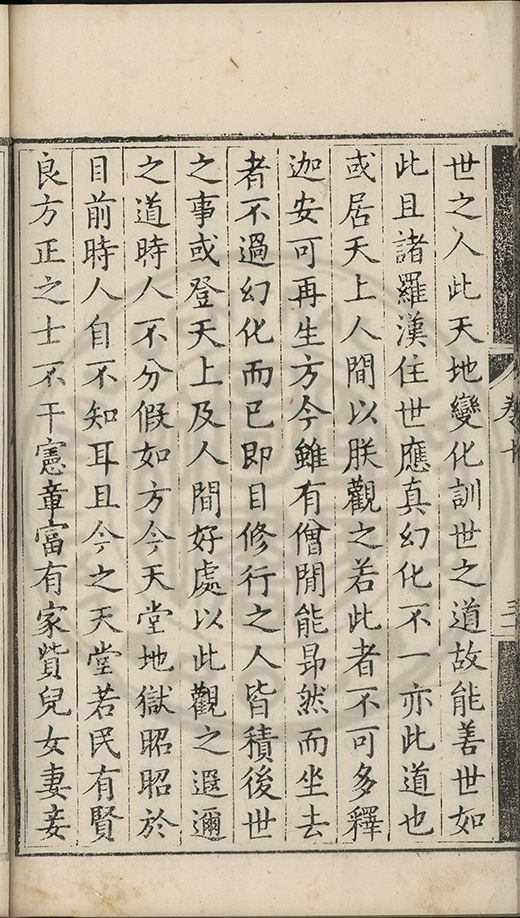 世之人此天地變化訓世之道故能善世如
此且諸羅漢住世應真幻化不一亦此道也
或居天上人間以朕觀之若此者不可多釋
迦安可再生方今雖有僧間能昻然而坐去
者不過幻化而已即目修行之人皆積後世
之事或登天上及人間好處以此觀之遐邇
之道時人不分假如方今天堂地獄昭昭於
目前時人自不知耳且今之天堂若民有賢
良方正之士不干憲章富有家貲兒女妻妾